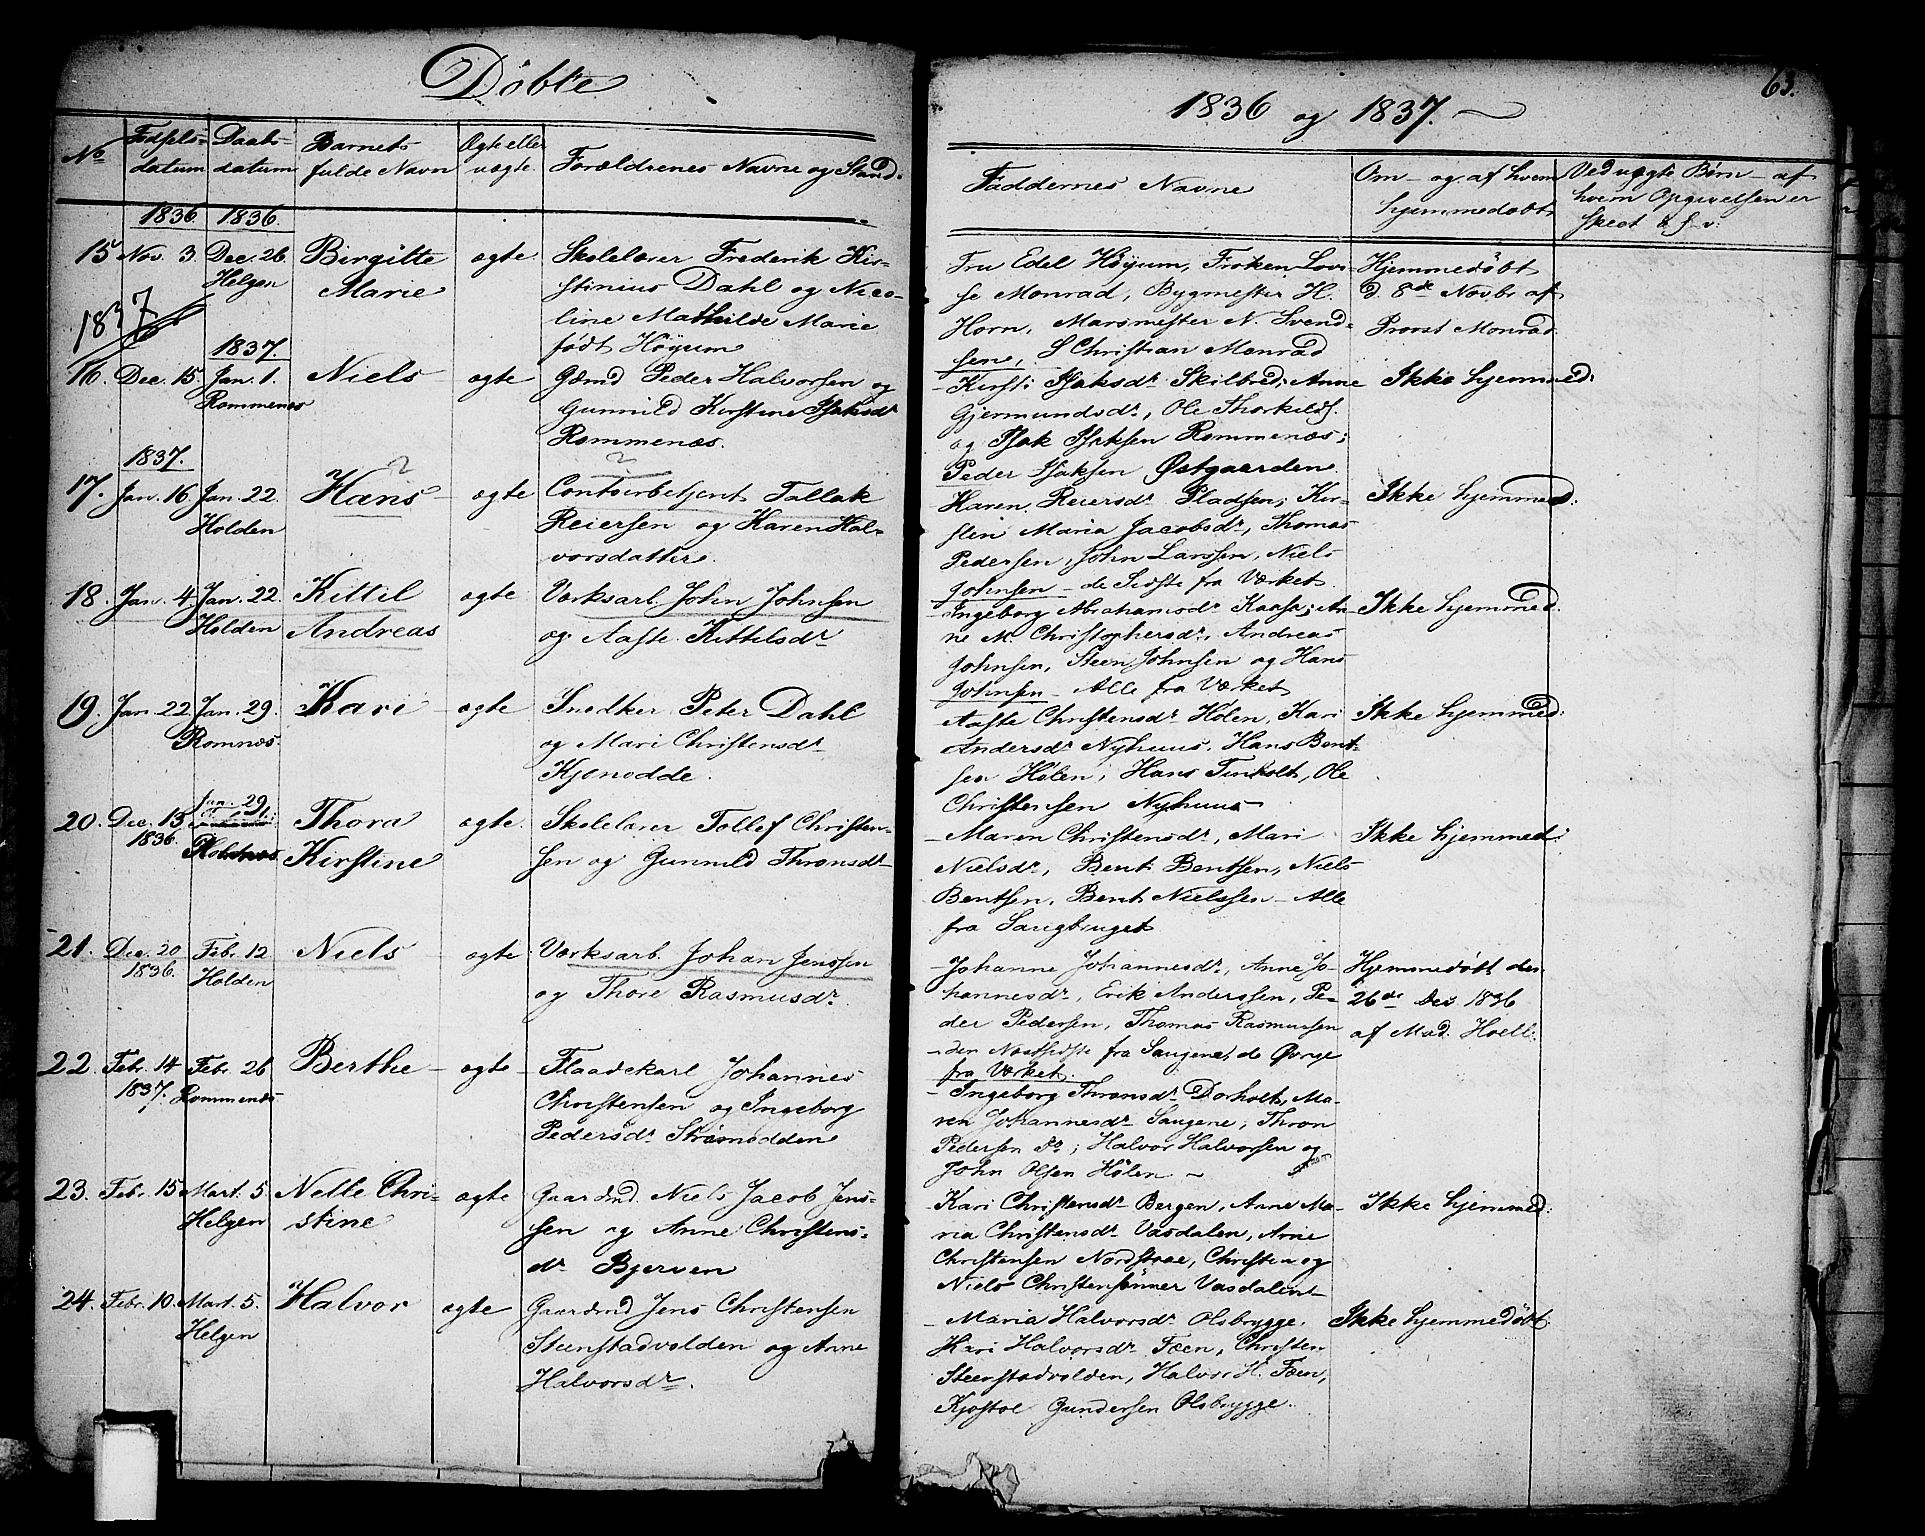 Døbte
1836 og 1837.
63.
No
Fødsels-
datum
Daabs-
datum
Barnets
fulde Navn
Ægte eller
uægte
Forældrenes Navne og Stand.
Faddernes Navne
Om- og af hvem
hjemmedøbt
Ved uægte Børn- af
hvem Opgivelsen er
skeet o. s. v.
1836 1836.
15 Nov. 3. Dec. 26. Helgen
Birgitte
Marie
ægte
Skolelærer Frederik Kir-
stinius Dahl og Nico-
line Mathilde Marie
født Høyum
Fru Edel Høyum, Frøken Lovi-
se Monrad, Bygmester H.
Horn, Marsmester N. Svend-
sen, S Christian Monrad
Hjemmedøbt
d. 8de Novbr af
Provst Monrad
1837
1837.
16. Dec. 15. Jan. 1. Rommenæs
Niels
ægte
Gaardmd Peder Halvorsen og
Gunnild Kirstine Isaksdr
Rommenæs.
Kirsti Isaksdr Skilbred; Anne
Gjermundsdr, Ole Thorkilds.
og Isak Isaksen Rommenæs;
Peder Isaksen Østgaarden
Ikke hjemmed:
1837.
17. Jan. 16. Jan. 22. Holden
Hans
ægte
Contoirbetjent Tallak
Reiersen og Karen Hal-
vorsdatter.
Karen Reiersdr Pladsen; Kir-
stin Maria Jacobsdr, Thomas
Pedersen, John Larssen, Niels
Johnsen - de Sidste fra Værket.
Ikke hjemmed:
18. Jan. 4. Jan. 22. Holden
Kittil
Andreas
ægte
Værksarb. John Johnsen
og Aaste Kittelsdr
Ingeborg Abrahamsdr Kaasa; An-
ne M. Christophersdr, Andreas
Johnsen, Steen Johnsen og Hans
Johnsen - Alle fra Værket
Ikke hjemmed.
19. Jan. 22. Jan. 29. Romnæs.
Kari
ægte
Snedker Peter Dahl
og Mari Christensdr
Kjenodde.
Aaste Christensdr Holen, Kari
Andersdr Nyhuus, Hans Bent-
sen Holen; Hans Tinholt, Ole
Christensen Nyhuus
Ikke hjemmed:
20. Dec. 15 1836. Jan. 29.
Thora
Kirstine
ægte.
Skolelærer Tollef Christen-
sen og Gunnild Thronsdr
Maren Christensdr, Mari
Nielsdr, Bent Bentsen, Niels
Bentsen, Bent Nielssen - Alle
fra Saugbruget
Ikke hjemmed:
21. Dec. 20 1836. Febr. 12 Holden
Niels
ægte
Værksarb. Johan Jenssen
og Thore Rasmusdr.
Johanne Johannesdr, Anne Jo-
hannesdr, Erik Anderssen, Pe-
der Pedersen, Thomas Rasmussen
- den Næstsidste fra Saugene, de Øvrige
fra Værket.
Hjemmedøbt den
26de Dec 1836
af Mad. Hoell:
22. Febr. 14 1837. Febr. 26 Rommenæs
Berthe
ægte
Flaadekarl Johannes
Christensen og Ingeborg
Pedersdr Strømodden
Ingeborg Thronsdr Dorholt, Ma-
ren Johannesdr Saugene; Thron
Pedersen do; Halvor Halvorsen og
John Olsen Holen
23. Febr. 15 Mart. 5. Helgen
Nelle Chri-
stine
ægte
Gaardmd. Niels Jacob Jens-
sen og Anne Christens-
dr Bjerven
Kari Christensdr Bergen, Anne Ma-
ria Christensdr Vasdalen, Arne
Christensen Nordstraae, Christen og
Niels Christensønner Vasdalen
Ikke hjemmed:
24. Febr. 10. Mart. 5. Helgen
Halvor
ægte
Gaardmd Jens Christensen
Steenstadvolden og Anne
Halvorsdr.
Maria Halvorsdr Olsbrygge.
Kari Halvorsdr Fæen, Christen
Steenstadvolden, Halvor H. Fæen,
Kjøstol Gundersen Olsbrygge.
Ikke hjemmedøbt: